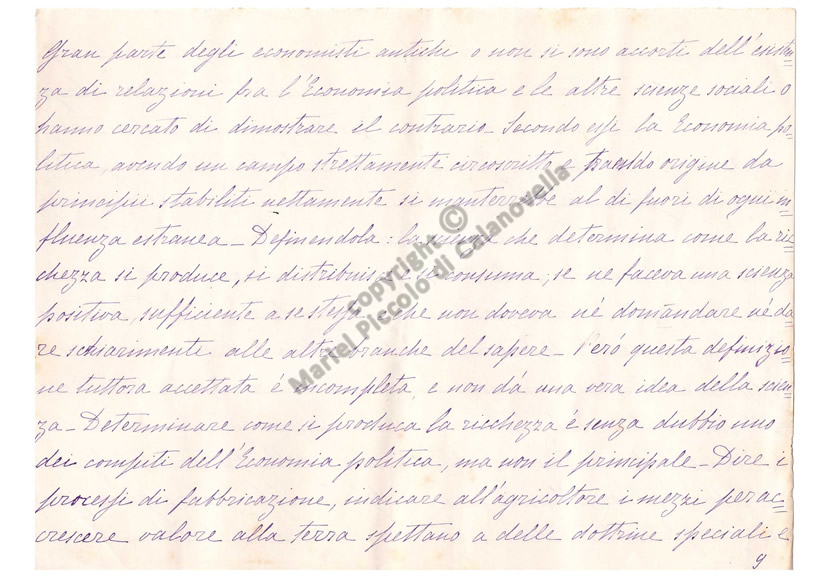 Gran parte degli economisti antichi o non si sono accorti dell'esisten=
za di relazioni fra l'Economia politica e le altre scienze sociali o
hanno cercato di dimostrare il contrario. Secondo essi la Economia po=
litica, avendo un campo strettamente circoscritto e traendo origine da
principii stabiliti nettamente si manterrebbe al di fuori di ogni in=
fluenza estranea_ Definendola: la scienza che determina come la ric=
chezza si produce, si distribuisce e si consuma, se ne faceva una scienza
positiva, sufficiente a se stessa e che non doveva né domandare né da=
re schiarimenti alle altre branche del sapere_ Però questa definizio=
ne tuttora accettata é incompleta, e non dà una vera idea della scien=
za_ Determinare come si produca la ricchezza é senza dubbio uno
dei compiti dell'Economia politica, ma non il principale_ Dire i
processi di fabbricazione, indicare all'agricoltore i mezzi per ac=
crescere valore alla terra spettano a delle dottrine speciali e
9
copyright ©
Martel Piccolo di Calanovella